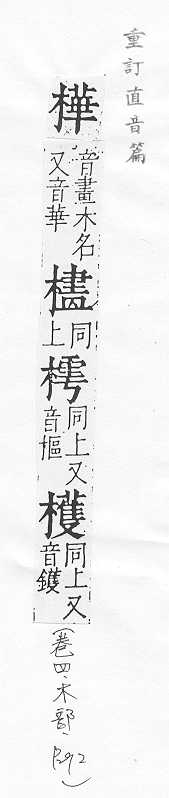 重訂直音篇
樺音畫木名又音華𣛻同上樗同上又音樞檴同上又音鑊
(卷四.木部.P.92)